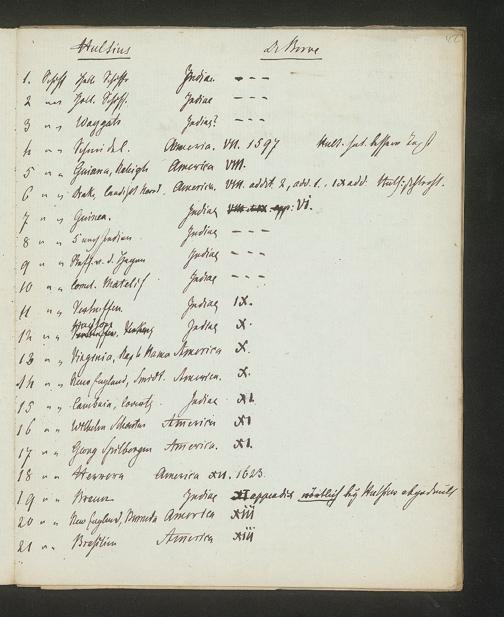 Hulsius De Brÿe
1. Schff Holl. Schiffe Indiae - - -
2 " " Holl. Schiff. Indiae - - -
3 " " Waygats Indiae? - - -
4 " " Schmidel. America. VII. 1597 Huls. hat bessern Text
5 " " Guiana, Raleigh America VIII.
6 " " America. VIII. addit. 2, add. 1., IX add.
7 " " Guinea. Indiae app: VI.
8 " " 5 nach Indien Indiae - - -
9 " " v. d. Hagen Indiae - - -
10 " " Corn. Matelief Indiae - - -
11 " " Verhuffen Indiae IX.
12 " " Hudson Indiae X.
13 " " Virginia, America X.
14 " " New England, Smidt. America. X.
15 " " Cambaia, Indiae XI
16 " " Wilhelm Schouten America XI
17 " " Georg Spilbergen America. XI.
18 " " Herrera America XII. 1623.
19 " " Braun Indiae appendix wörtlich bey Hulsius abgedruckt
20 " " New England, Bermuda America XIII
21 " " Brasilien America XIII